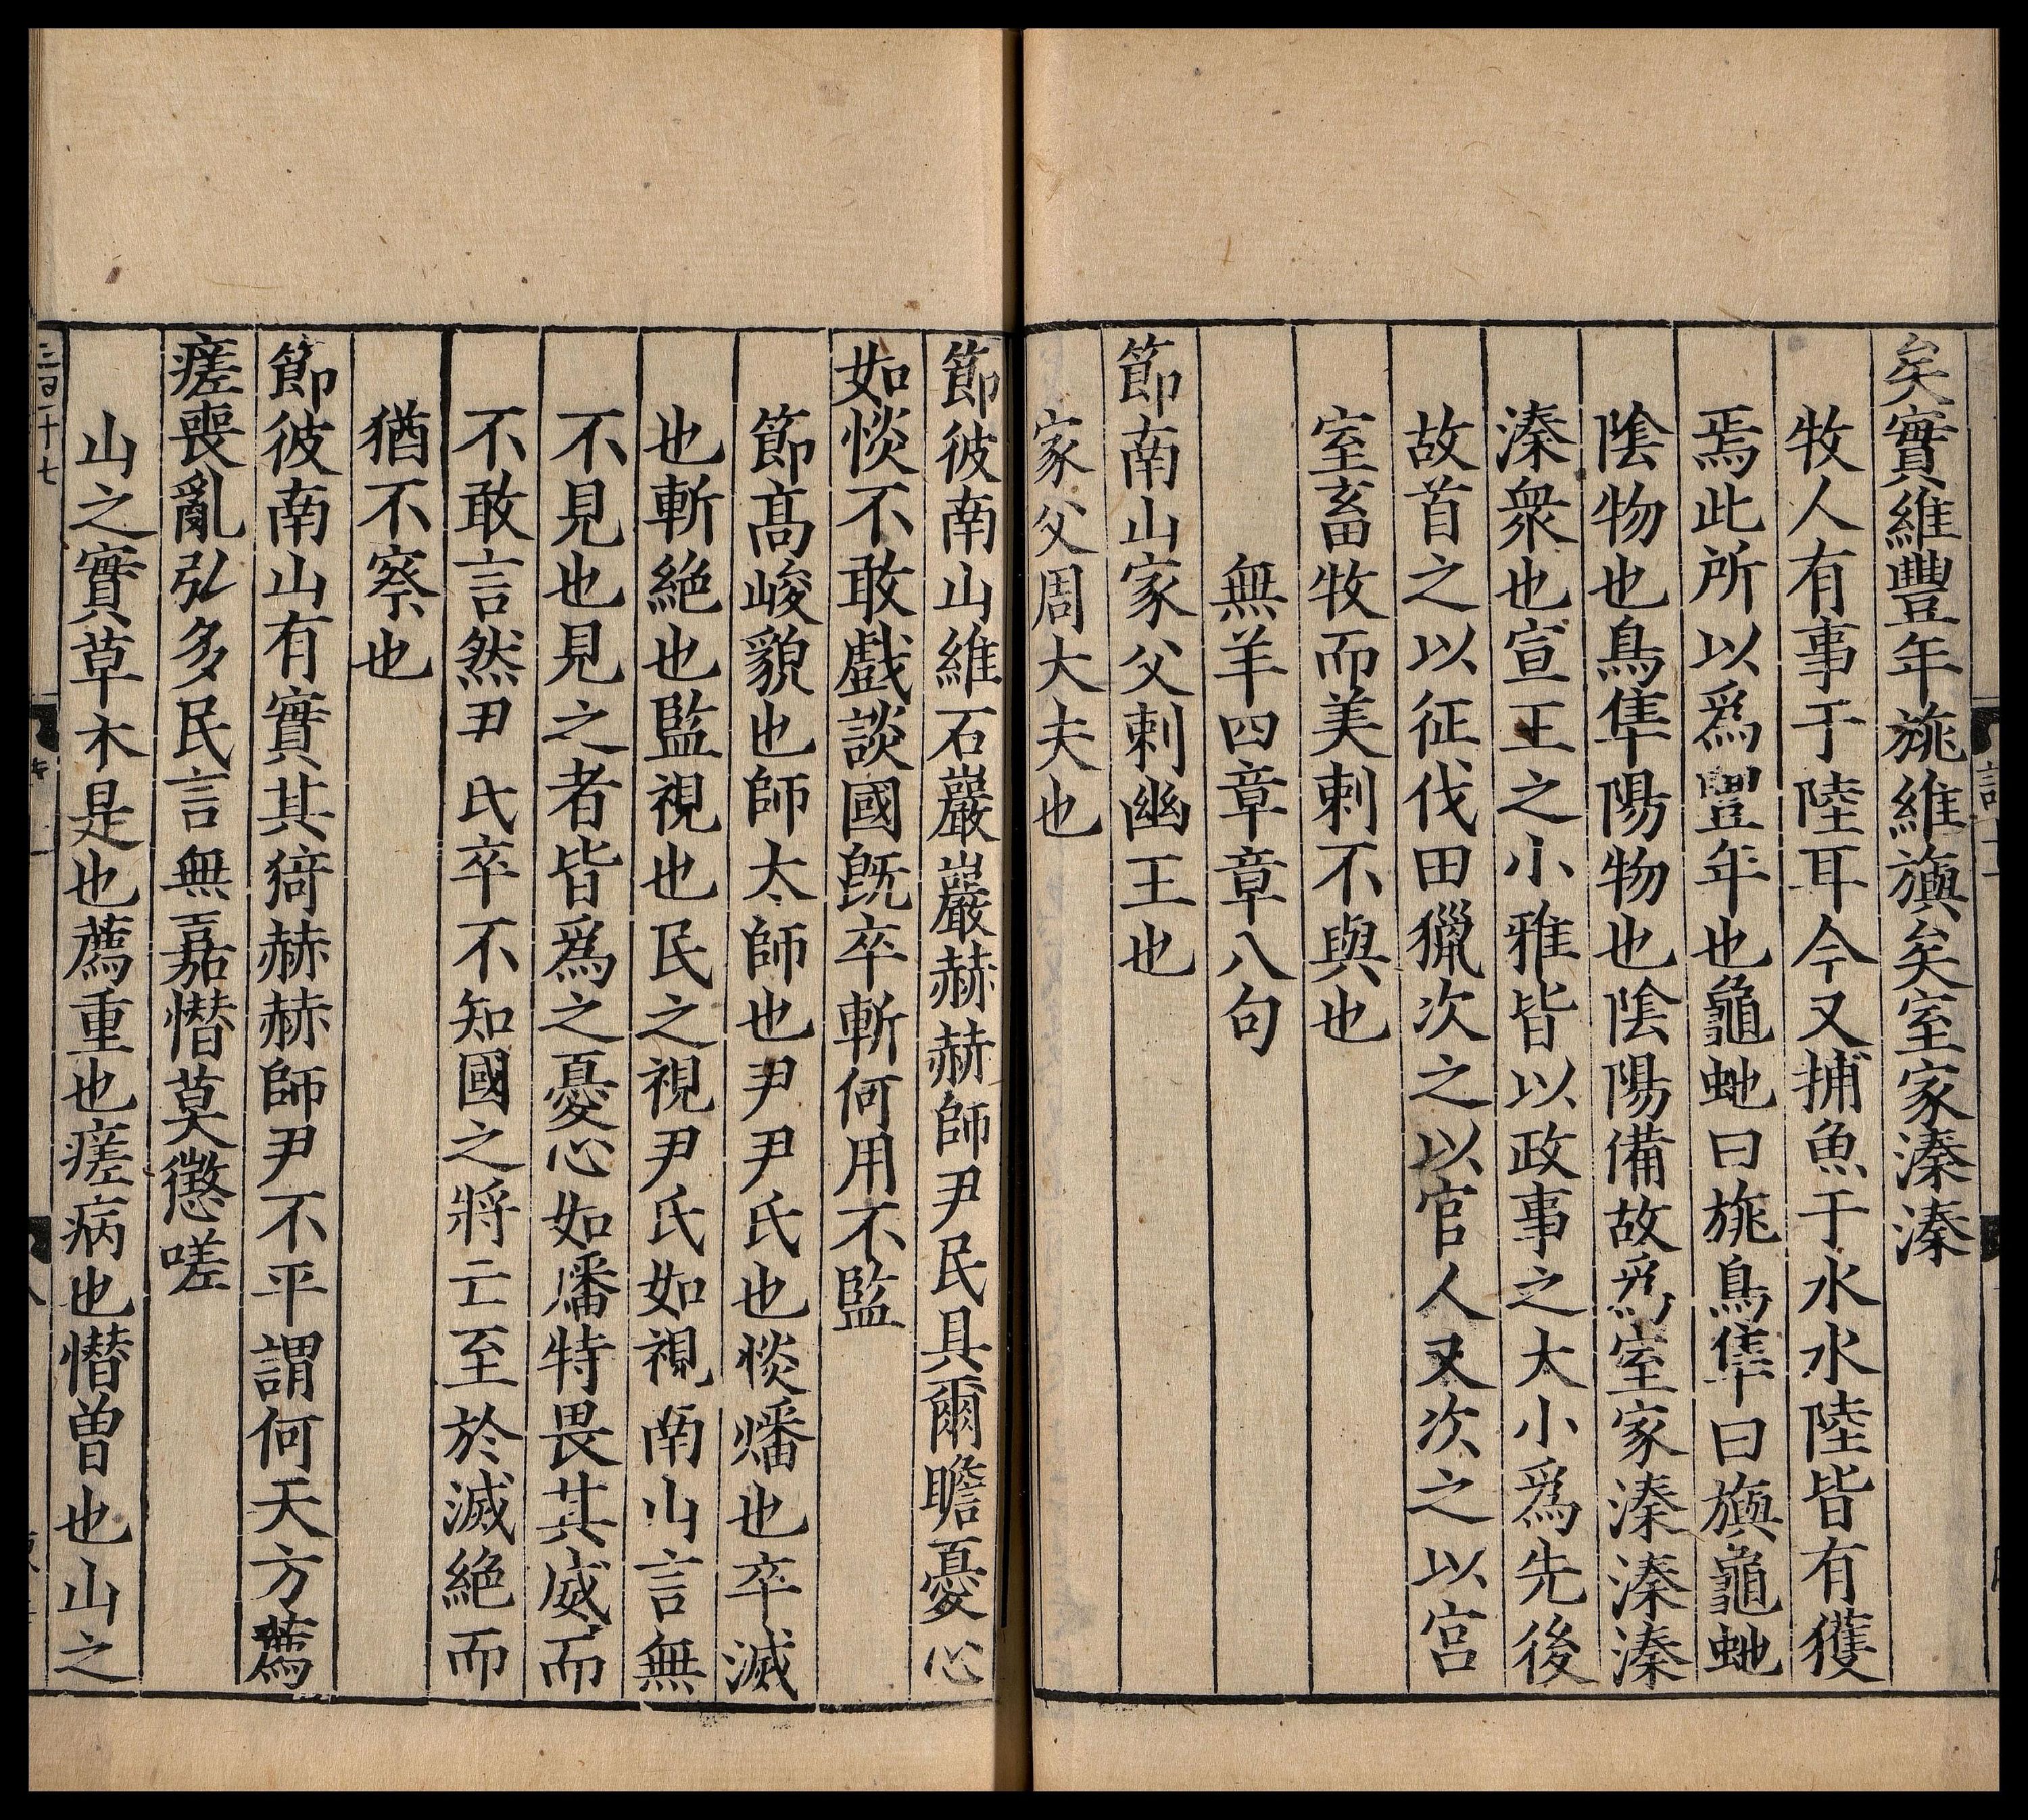 矣實維豐年旐維旟矣室家溱溱
牧人有事于陸耳今又捕魚于水水陸皆有獲
焉此所以爲豐年也龜虵曰旐鳥隼曰旟龜虵
陰物也鳥隼陽物也陰陽備故爲室家溱溱溱
溱衆也宣王之小雅皆以政事之大小爲先後
故首之以征伐田獵次之以官人又次之以宮
室畜牧而美刺不與也
無羊四章章八句
節南山家父刺幽王也
家父周大夫也
節彼南山維石巖巖赫赫師尹民具爾瞻憂心
如惔不敢戲談國既卒斬何用不監
節髙峻貌也師太師也尹尹氏也惔燔也卒滅
也斬絕也監視也民之視尹氏如視南山言無
不見也見之者皆爲之憂心如燔特畏其威而
不敢言然尹氏卒不知國之將亡至於滅絕而
猶不察也
節彼南山有實其猗赫赫師尹不平謂何天方薦
瘥喪亂弘多民言無嘉憯莫懲嗟
山之實草木是也薦重也瘥病也憯曾也山之
三百二十七